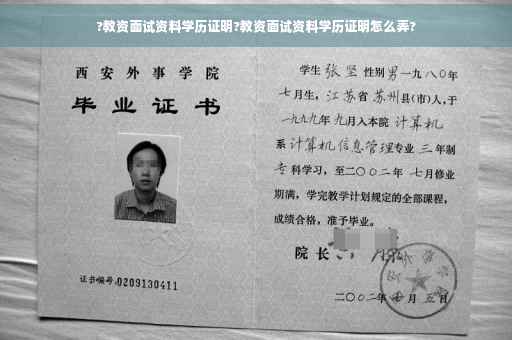 ?教资面试资料学历证明?教资面试资料学历证明怎么弄?
西安外事学院
毕业证书
证书编号:0209130411
学生 张坚 性别男一九八〇年
七月生, 江苏省 苏州县(市)人,于
一九九九年 九月入本院 计算机
系 计算机信息管理专业 三 年制
专 科学习, 至二〇〇二年 七月修业
期满, 学完教学计划规定的全部课程,
成绩合格, 准予毕业。
院长
二〇〇二年 月 五日